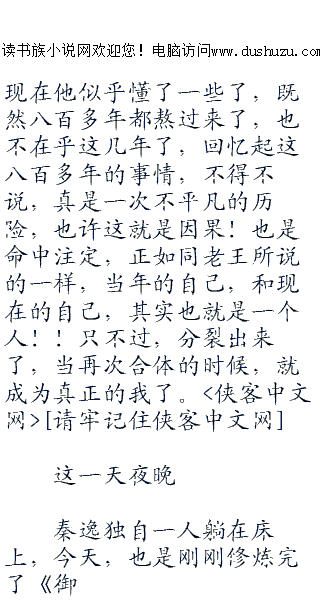 读书族小说网欢迎您！电脑访问www.dushuzu.com
现在他似乎懂了一些了，既
然八百多年都熬过来了，也
不在乎这几年了，回忆起这
八百多年的事情，不得不
说，真是一次不平凡的历
险，也许这就是因果！也是
命中注定，正如同老王所说
的一样，当年的自己，和现
在的自己，其实也就是一个
人！！只不过，分裂出来
了，当再次合体的时候，就
成为真正的我了。<侠客中文
网>[请牢记住侠客中文网]
这一天夜晚
秦逸独自一人躺在床
上，今天，也是刚刚修炼完
了《御